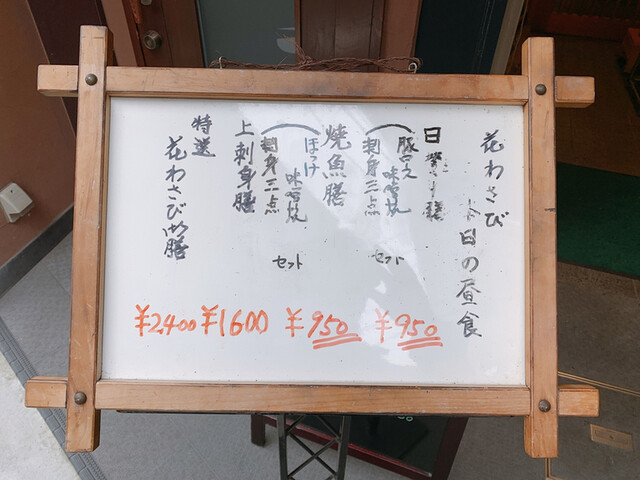 花わさび
本日の昼食
日替り膳
豚ロース味噌焼
刺身三点
セット
¥950
焼魚膳
ほっけ味噌焼
刺身三点
セット
¥950
上刺身膳
¥1600
特選
花わさび御膳
¥2,400